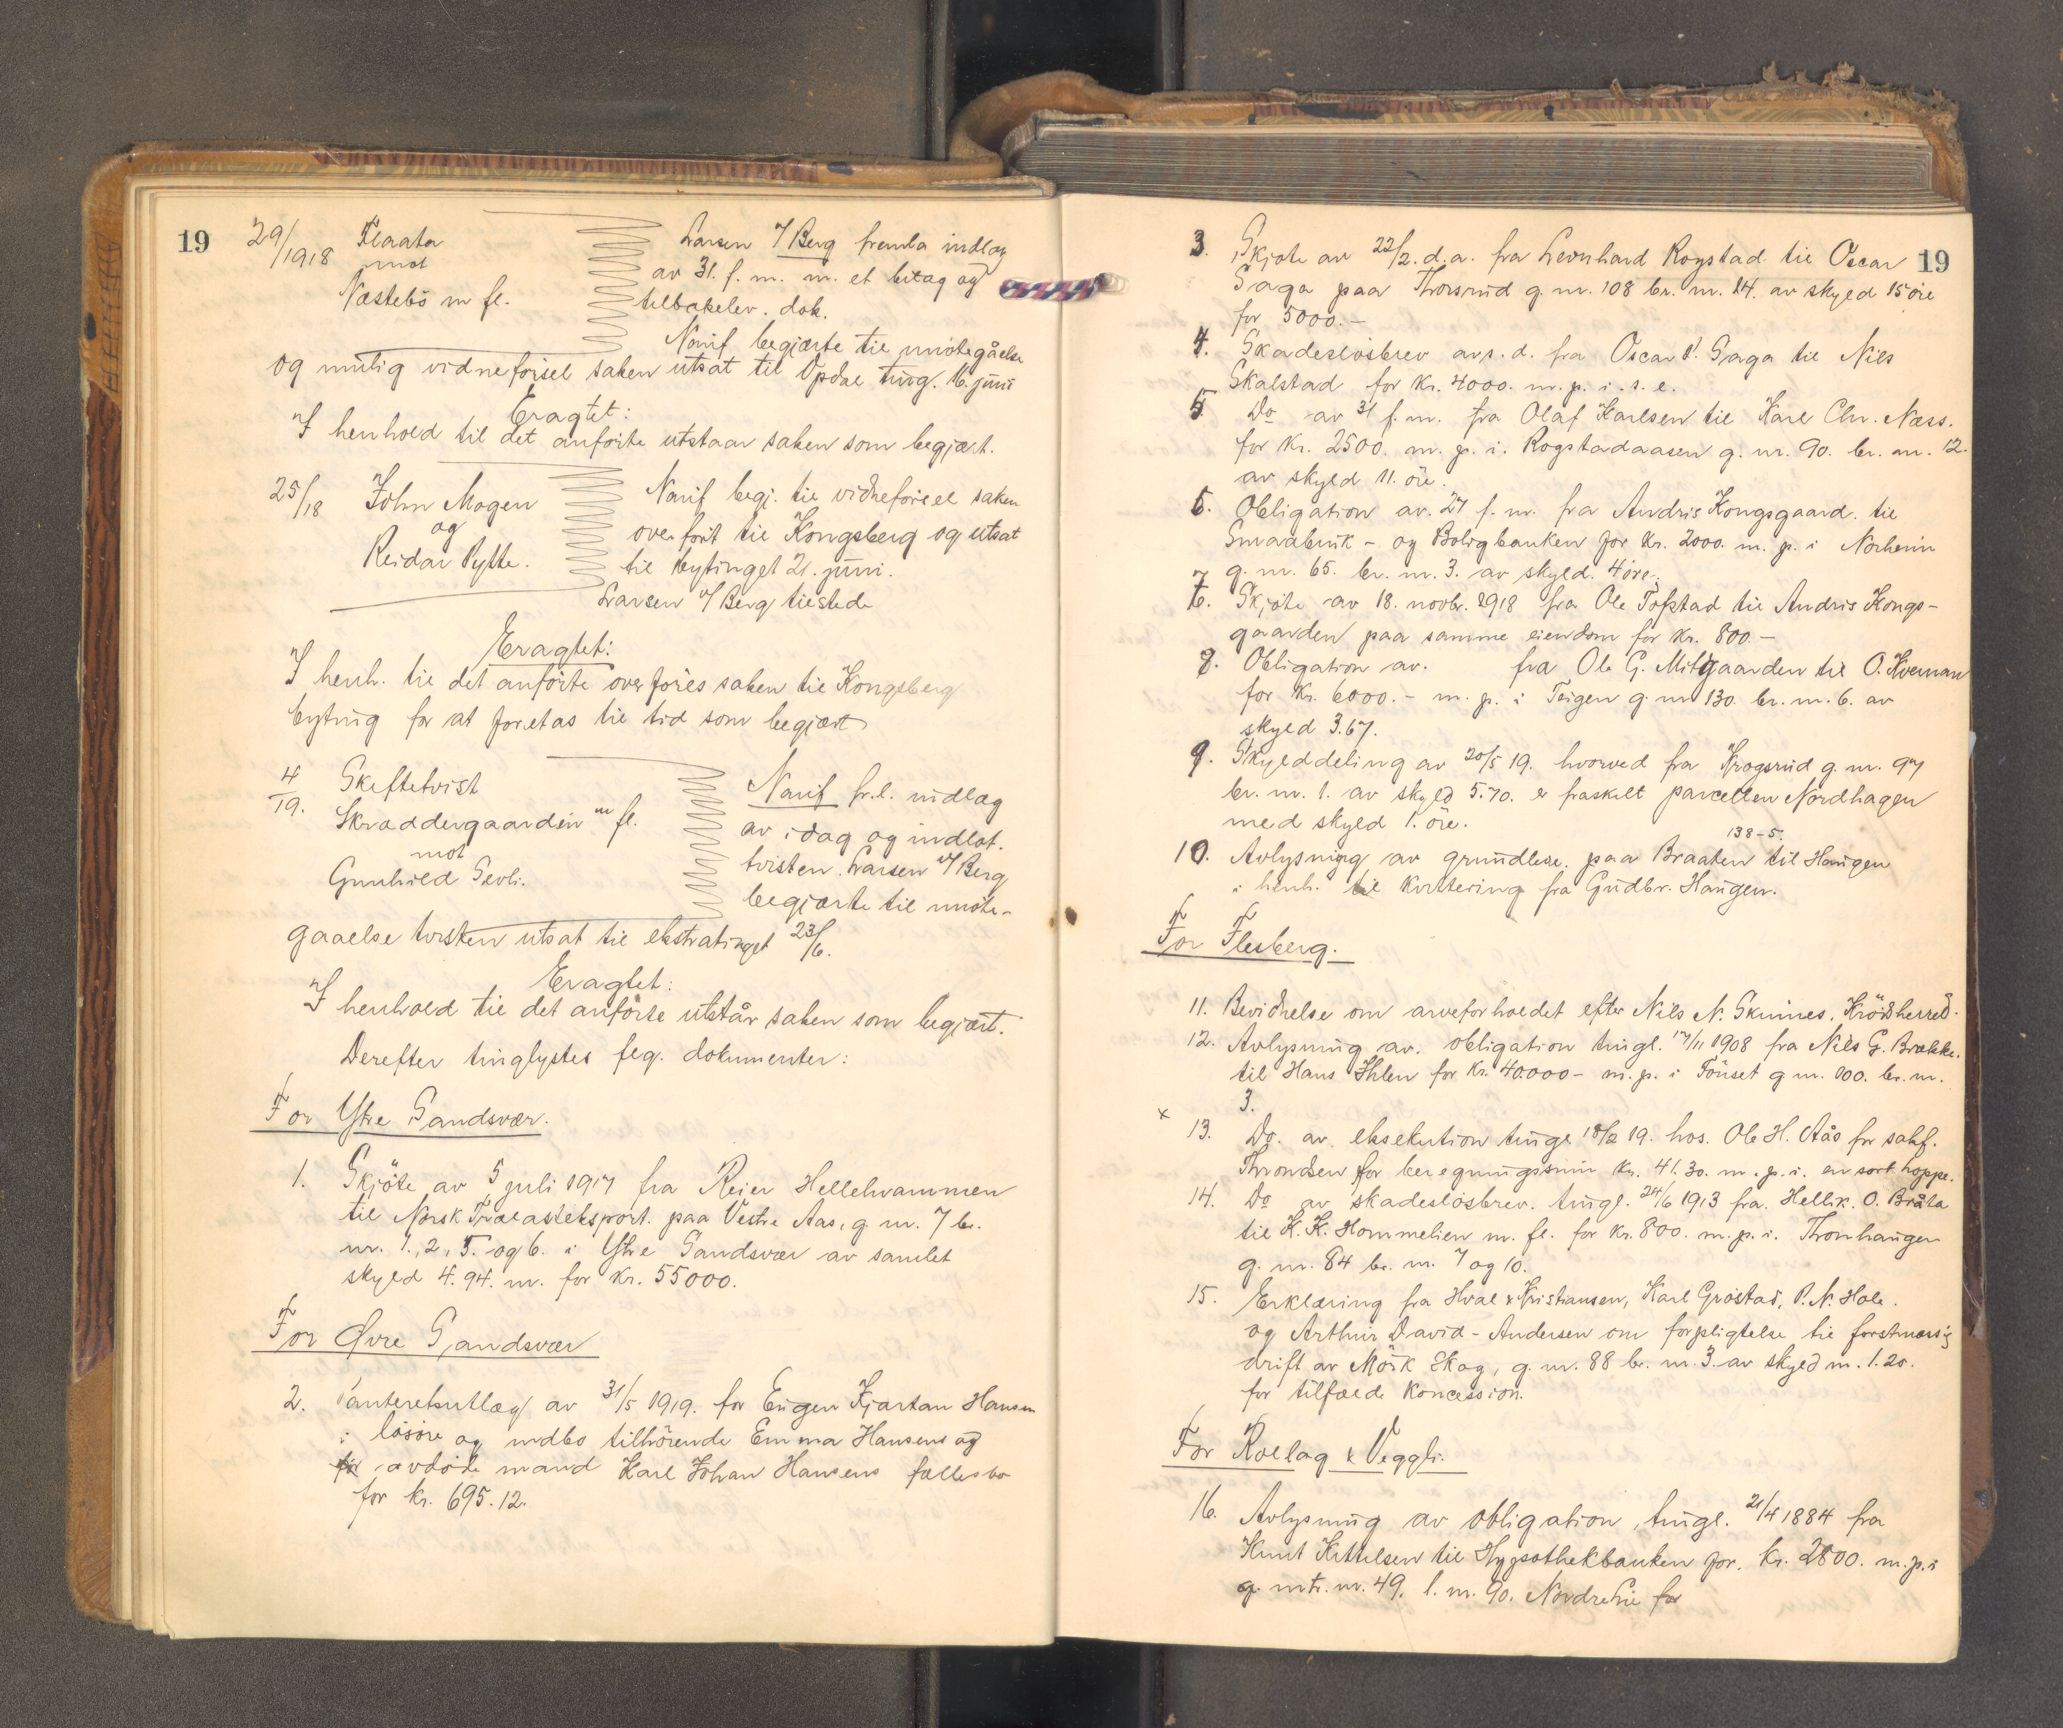 19
29/1918 Flaata
mot
Næstebö m fl.
Larsen v/ Berg fremla indlæg
av 31. f. m. m. et bilag og
tilbakelev. dok.
Narif begjærte til imötegåelse
og mulig vidneförsel saken utsat til Opdal ting. 16. juni
Eragtet:
I henhold til det anförte utstaar saken som begjært.
25/18 John Mogen
og
Reidar Pytte.
Narif begj. til vidneförsel saken
overfört til Kongsberg og utsat
til bytinget 21. juni.
Larsen v/ Berg tilstede
Eragtet:
I henh. til det anförte overföres saken til Kongsberg
byting for at foretas til tid som begjært
4/19. Skiftetvist
Skræddergaarden m fl.
mot
Gunhild Sevli.
Narif fr.l. indlæg
av idag og indlot.
tvisten. Larsen v/ Berg
begjærte til imöte-
gaaelse tvisten utsat til ekstratinget 23/6.
Eragtet:
I henhold til det anförte utstår saken som begjært.
Derefter tinglystes flg. dokumenter:
For Ytre Sandsvær.
1. Skjöte av 5 juli 1917 fra Reier Hellehvammen
til Norsk Trælasteksport. paa Vestre Aas, g. nr. 7 br.
nr. 1, 2, 5. og 6. i Ytre Sandsvær av samlet
skyld 4.94. m. for kr. 55000.
For Øvre Sandsvær
2. Panterekutlæg av 31/5 1919. for Eugen Kjartan Hansen
i lösöre og indbo tilhörende Emma Hansens og
avdöde mand Karl Johan Hansens fællesbo
for kr. 695.12.
19
3. Skjöte av 22/2. d.a. fra Leonhard Rogstad til Oscar
Saga paa Thorsrud g. nr. 108 br. nr. 14. av skyld 15 öre
for 5000.-
4. Skadeslösbrev av s. d. fra Oscar Saga til Nils
Skalstad for kr. 4000. m. p. i. s. e.
5. Do av 31 f. m. fra Olaf Karlsen til Karl Chr. Næss.
for kr. 2500. m. p. i. Rogstadaasen g. nr. 90. br. nr. 12.
av skyld 11. öre.
6. Obligation av. 27 f. m. fra Andris Kongsgaard. til
Smaabruk- og Boligbanken for kr. 2000. m. p. i Norheim
g. nr. 65. br. nr. 3. av skyld. 4 öre.
7. Skjöte av 18. novbr. 1918 fra Ole Tofstad til Andris Kongs-
gaarden paa samme eiendom for kr. 800-
8. Obligation av. fra Ole G. Mitgaarden til O. Kvernan
for kr. 6000.- m. p. i Teigen g. nr 130. br. nr. 6. av
skyld 3.67.
9. Skylddeling av 20/5 19. hvorved fra Krogsrud g. nr. 97
br. nr. 1. av skyld 5.70. er fraskilt parcellen Nordhagen
med skyld 1. öre.
138-5.
10. Avlysning av grundlese. paa Braaten til Haugen
i henh. til kvittering fra Gudbr. Haugen.
For Flesberg.
11. Bevidnelse om arveforholdet efter Nils N. Skinnes, Krödsherred.
12. Avlysning av. obligation tingl. 17/11 1908 fra Nils G. Brække.
til Hans Ihlen for kr. 40000- m. p. i Fönset g nr. 100. br. nr.
3.
x 13. Do. av eksekution tingl 18/2 19. hos. Ole H. Aås for sakf.
Throndsen for beregningssum kr. 41.30. m. p. i. en sort hoppe.
14. Do av skadeslösbrev. tingl. 24/6 1913 fra. Hellik. O. Bråta
til K. K. Hommelien m. fl. for kr. 800. m. p. i. Thronhaugen
g. nr. 84 br. nr. 7 og 10.
15. Erklæring fra Hval & Kristiansen, Karl Gröstad, P. N. Hole.
og Arthur David-Andersen om forpligtelse til forstmæssig
drift av Mörk Skog, g. nr. 88 br. nr. 3. av skyld m. 1.20.
for tilfælde koncession.
For Rollag & Veggli.
16. Avlysning av obligation, tingl. 21/4 1884 fra
Knut Kittelsen til Hypothekbanken for. kr. 2800. m. p. i
g. mtr. nr. 49, l. nr. 90. Nordrelie for